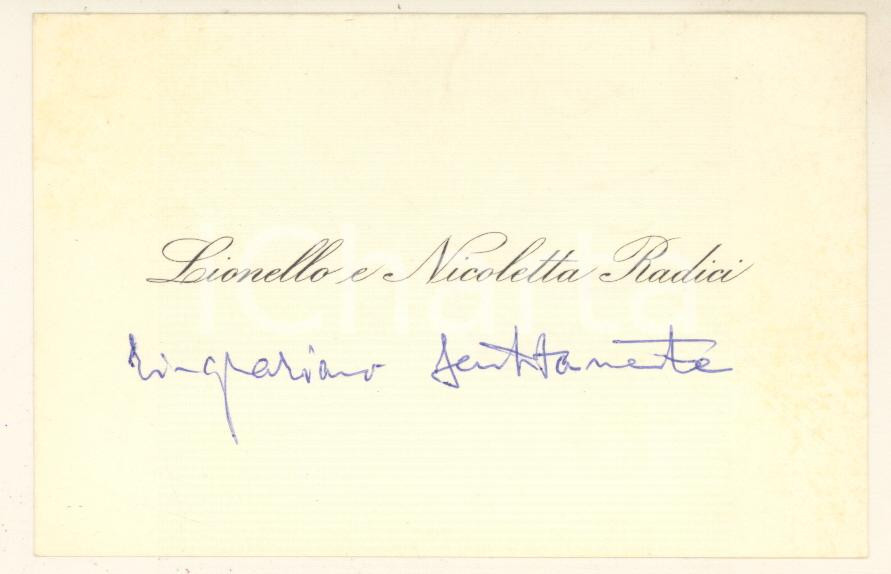 Lionello e Nicoletta Radici
ringraziano sentitamente
iCharta